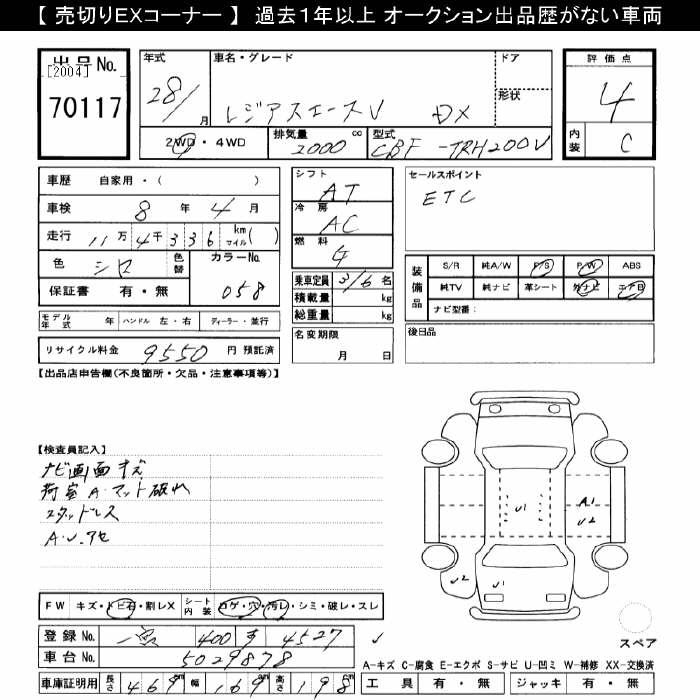 【 売切りEXコーナー 】 過去1年以上 オークション出品歴がない車両
出品No.
[2004]
70117
年式
28/
月
車名・グレード
レジアスエースV DX
ドア
形状
2WD・4WD
排気量
2000
cc
型式
CBF-TRH200V
評価点
4
内装
C
車歴 自家用・( )
車検 8 年 4 月
走行 11万 4千 3 3 6 km マイル( )
色 シロ
色替
カラーNo.
058
保証書 有・無
モデル年式 年 ハンドル 左・右 ディーラー・並行
リサイクル料金 9550 円 預託済
シフト
AT
冷房
AC
燃料
G
乗車定員 3/6 名
積載量 kg
総重量 kg
名変期限
月 日
セールスポイント
ETC
装備品
S/R 純A/W P/S P/W ABS
純TV 純ナビ 革シート 外ナビ エアB
ナビ型番:
後日品
【出品店申告欄(不良箇所・欠品・注意事項等)】
【検査員記入】
ナビ画面キズ
荷室A・マット破れ
スタッドレス
A・U・アセ
U1
A1
U2
U2
U1
FW キズ・トビ石・割レX
シート内装 コゲ・穴・汚レ・シミ・破レ・スレ
登録No. 400 す 4527
車台No. 5029878
車庫証明用 長さ 469cm 幅 169cm 高さ 198cm
スペア
A-キズ C-腐食 E-エクボ S-サビ U-凹ミ W-補修 XX-交換済
工具 有・無 ジャッキ 有・無